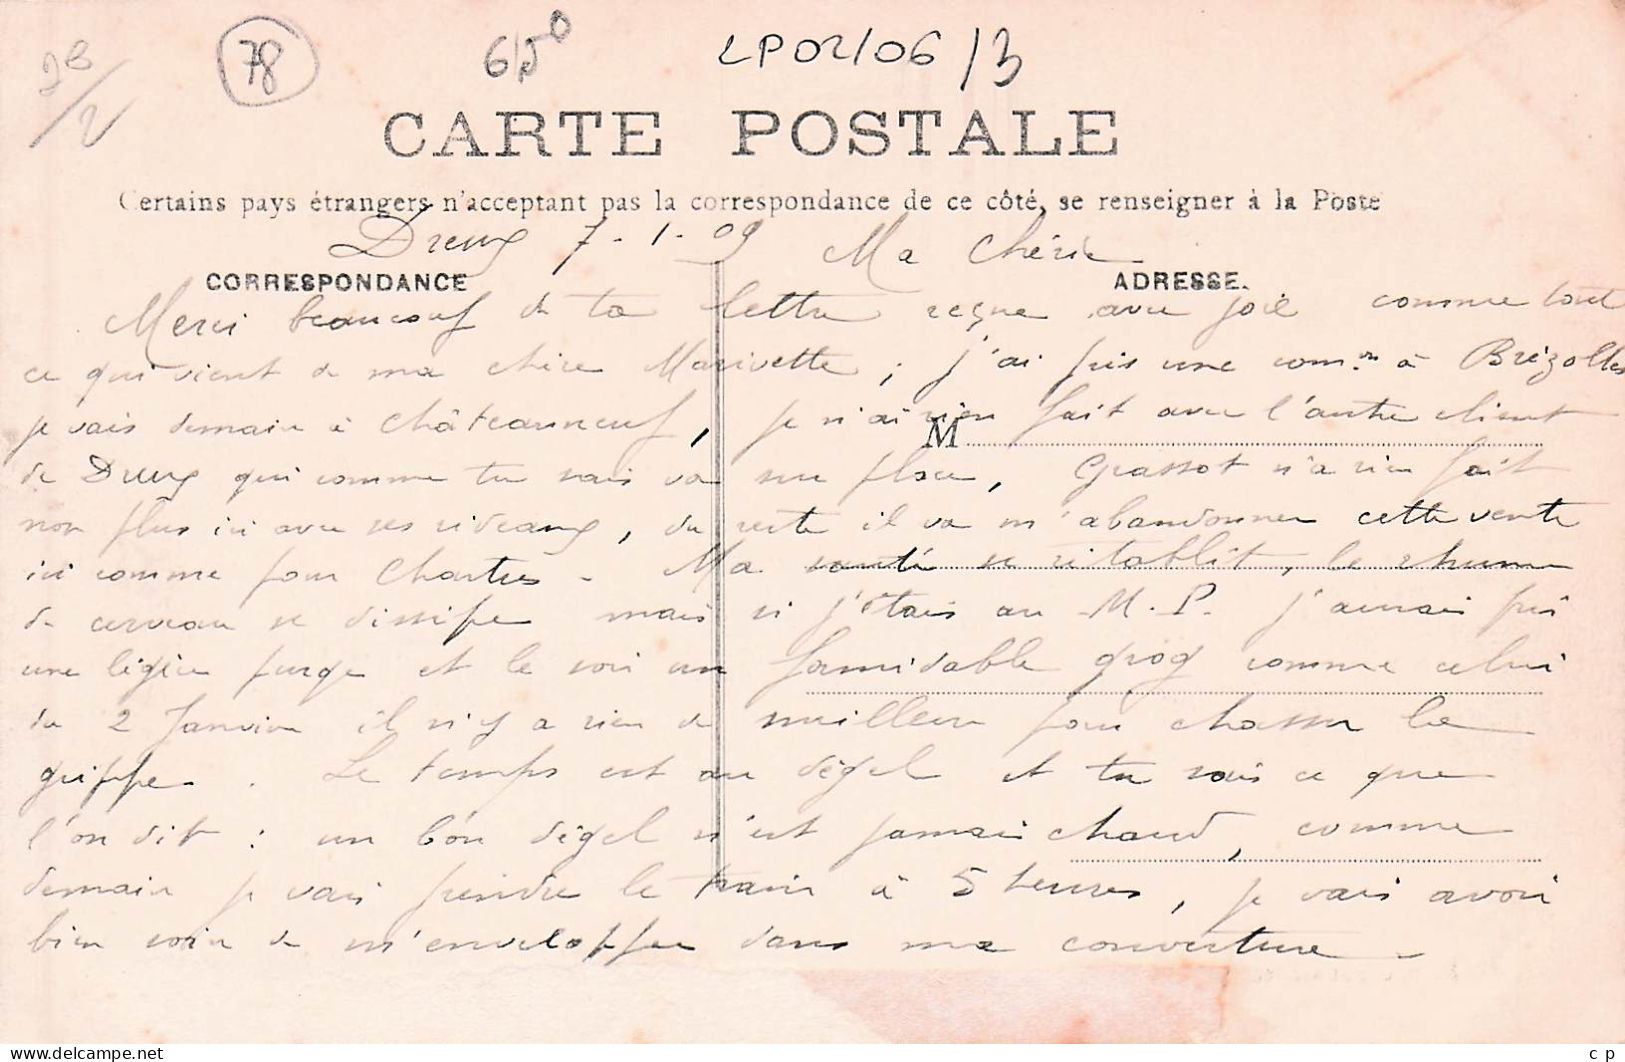 2B/2
78
650
LP02/06/3
CARTE POSTALE
Certains pays étrangers n'acceptant pas la correspondance de ce côté, se renseigner à la Poste
Dreux 7-1-09 Ma Chérie
CORRESPONDANCE
ADRESSE.
Merci beaucoup de ta lettre reçue avec joie comme tout
ce qui vient de ma chère Marivette ; j'ai pris une com.on à Brézolles
je vais demain à Châteauneuf, je n'ai rien fait avec l'autre client
M
de Dreux qui comme tu sais va sur place, Grassot n'a rien fait
non plus ici avec ses rideaux, du reste il va m'abandonner cette vente
ici comme pour Chartres - Ma santé se rétablit, le rhume
de cerveau se dissipe mais si j'étais au M.P. j'aurais pris
une légère purge et le soir un formidable grog comme celui
du 2 Janvier il n'y a rien de meilleur pour chasser la
grippe. Le temps est au dégel et tu sais ce que
l'on dit : un bon dégel n'est jamais chaud, comme
demain je vais prendre le train à 5 heures, je vais avoir
bien soin de m'envelopper dans ma couverture -
delcampe.net
c p